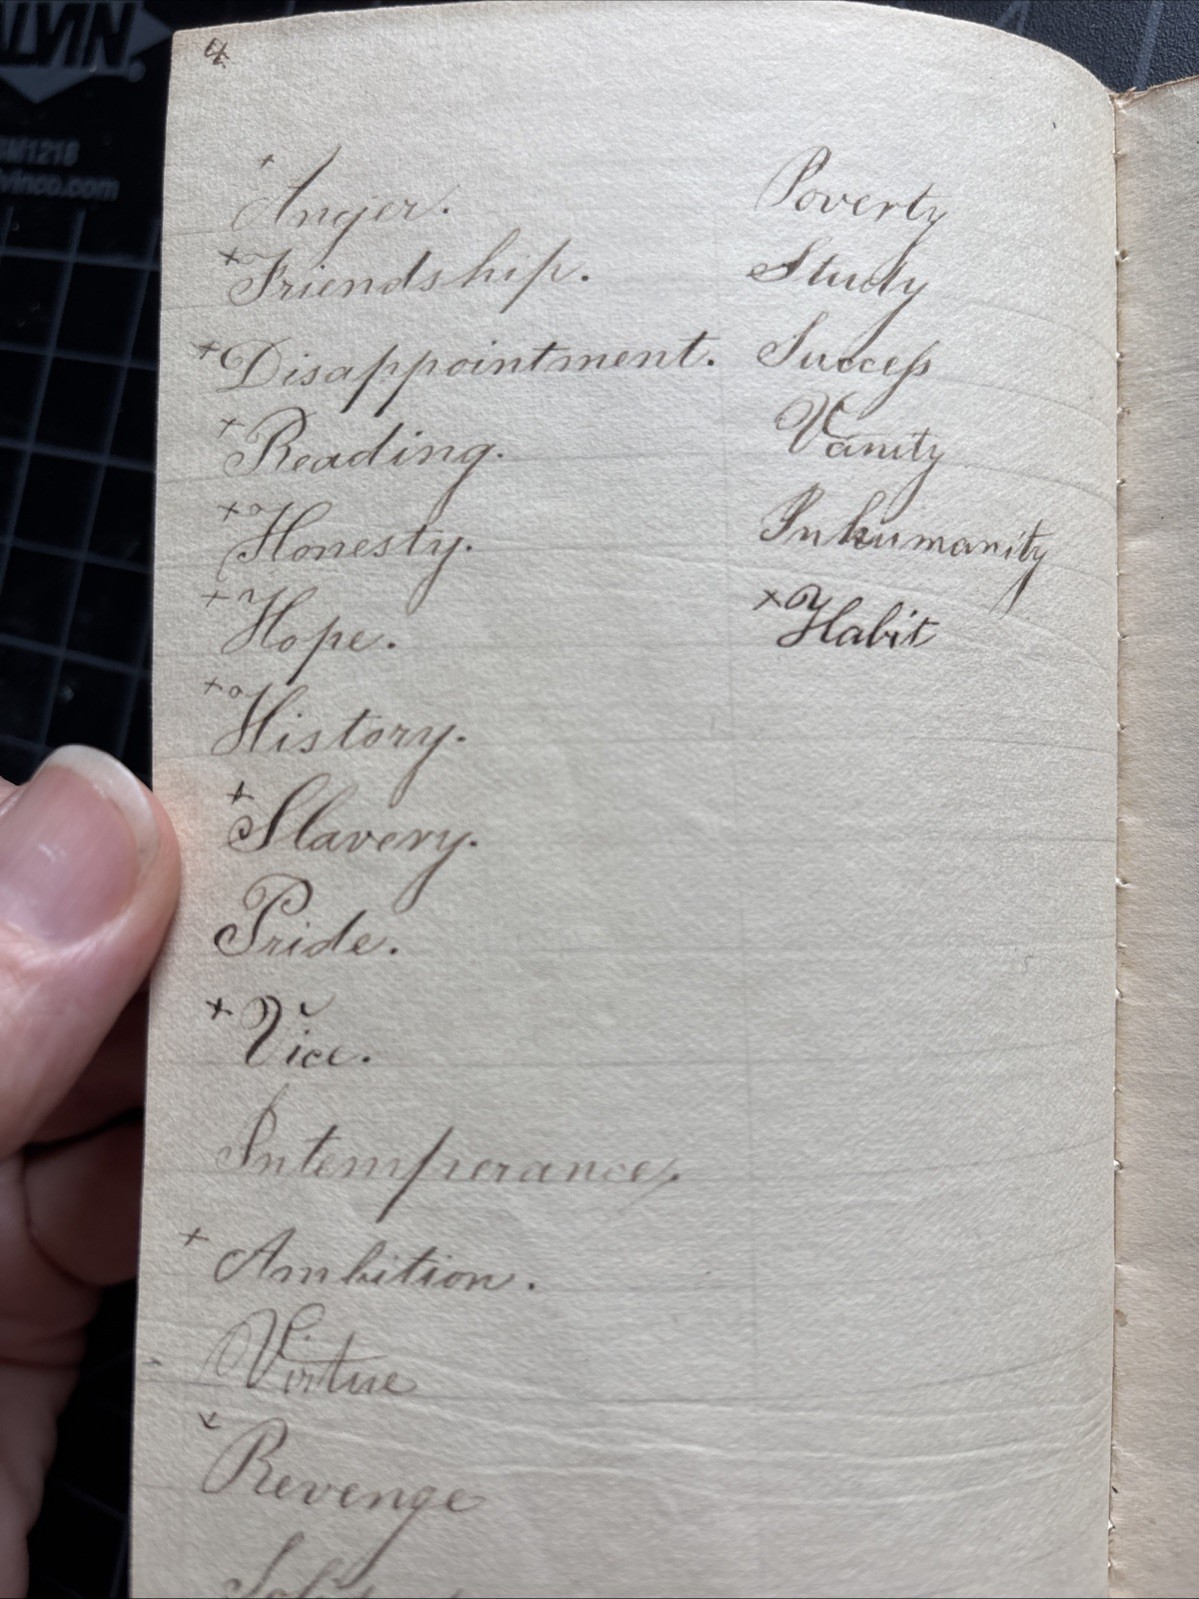 4
+Anger.
+Friendship.
+Disappointment.
+Reading.
+Honesty.
+Hope.
+History.
+Slavery.
Pride.
+Vice.
Intemperance.
+Ambition.
Virtue
+Revenge
Poverty
Study
Success
Vanity
Inhumanity
+Habit